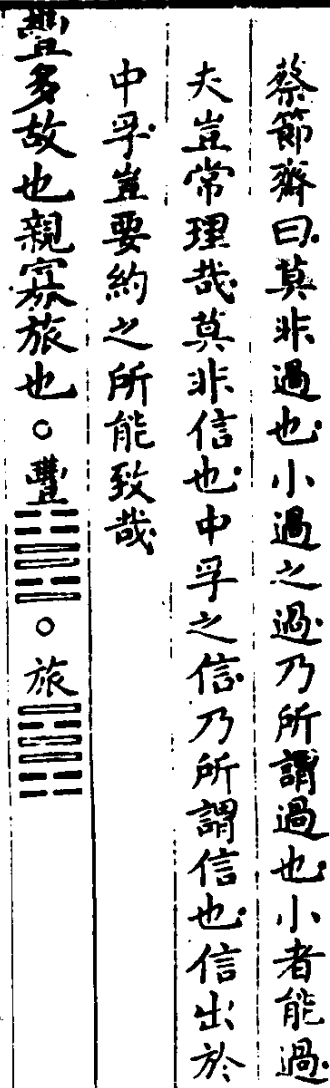 蔡節齋曰莫非過也小過之過乃所謂過也小者能過
夫豈常理哉莫非信也中孚之信乃所謂信也信出於
中孚豈要約之所能致哉
豐多故也親寡旅也○豐䷶○旅䷷